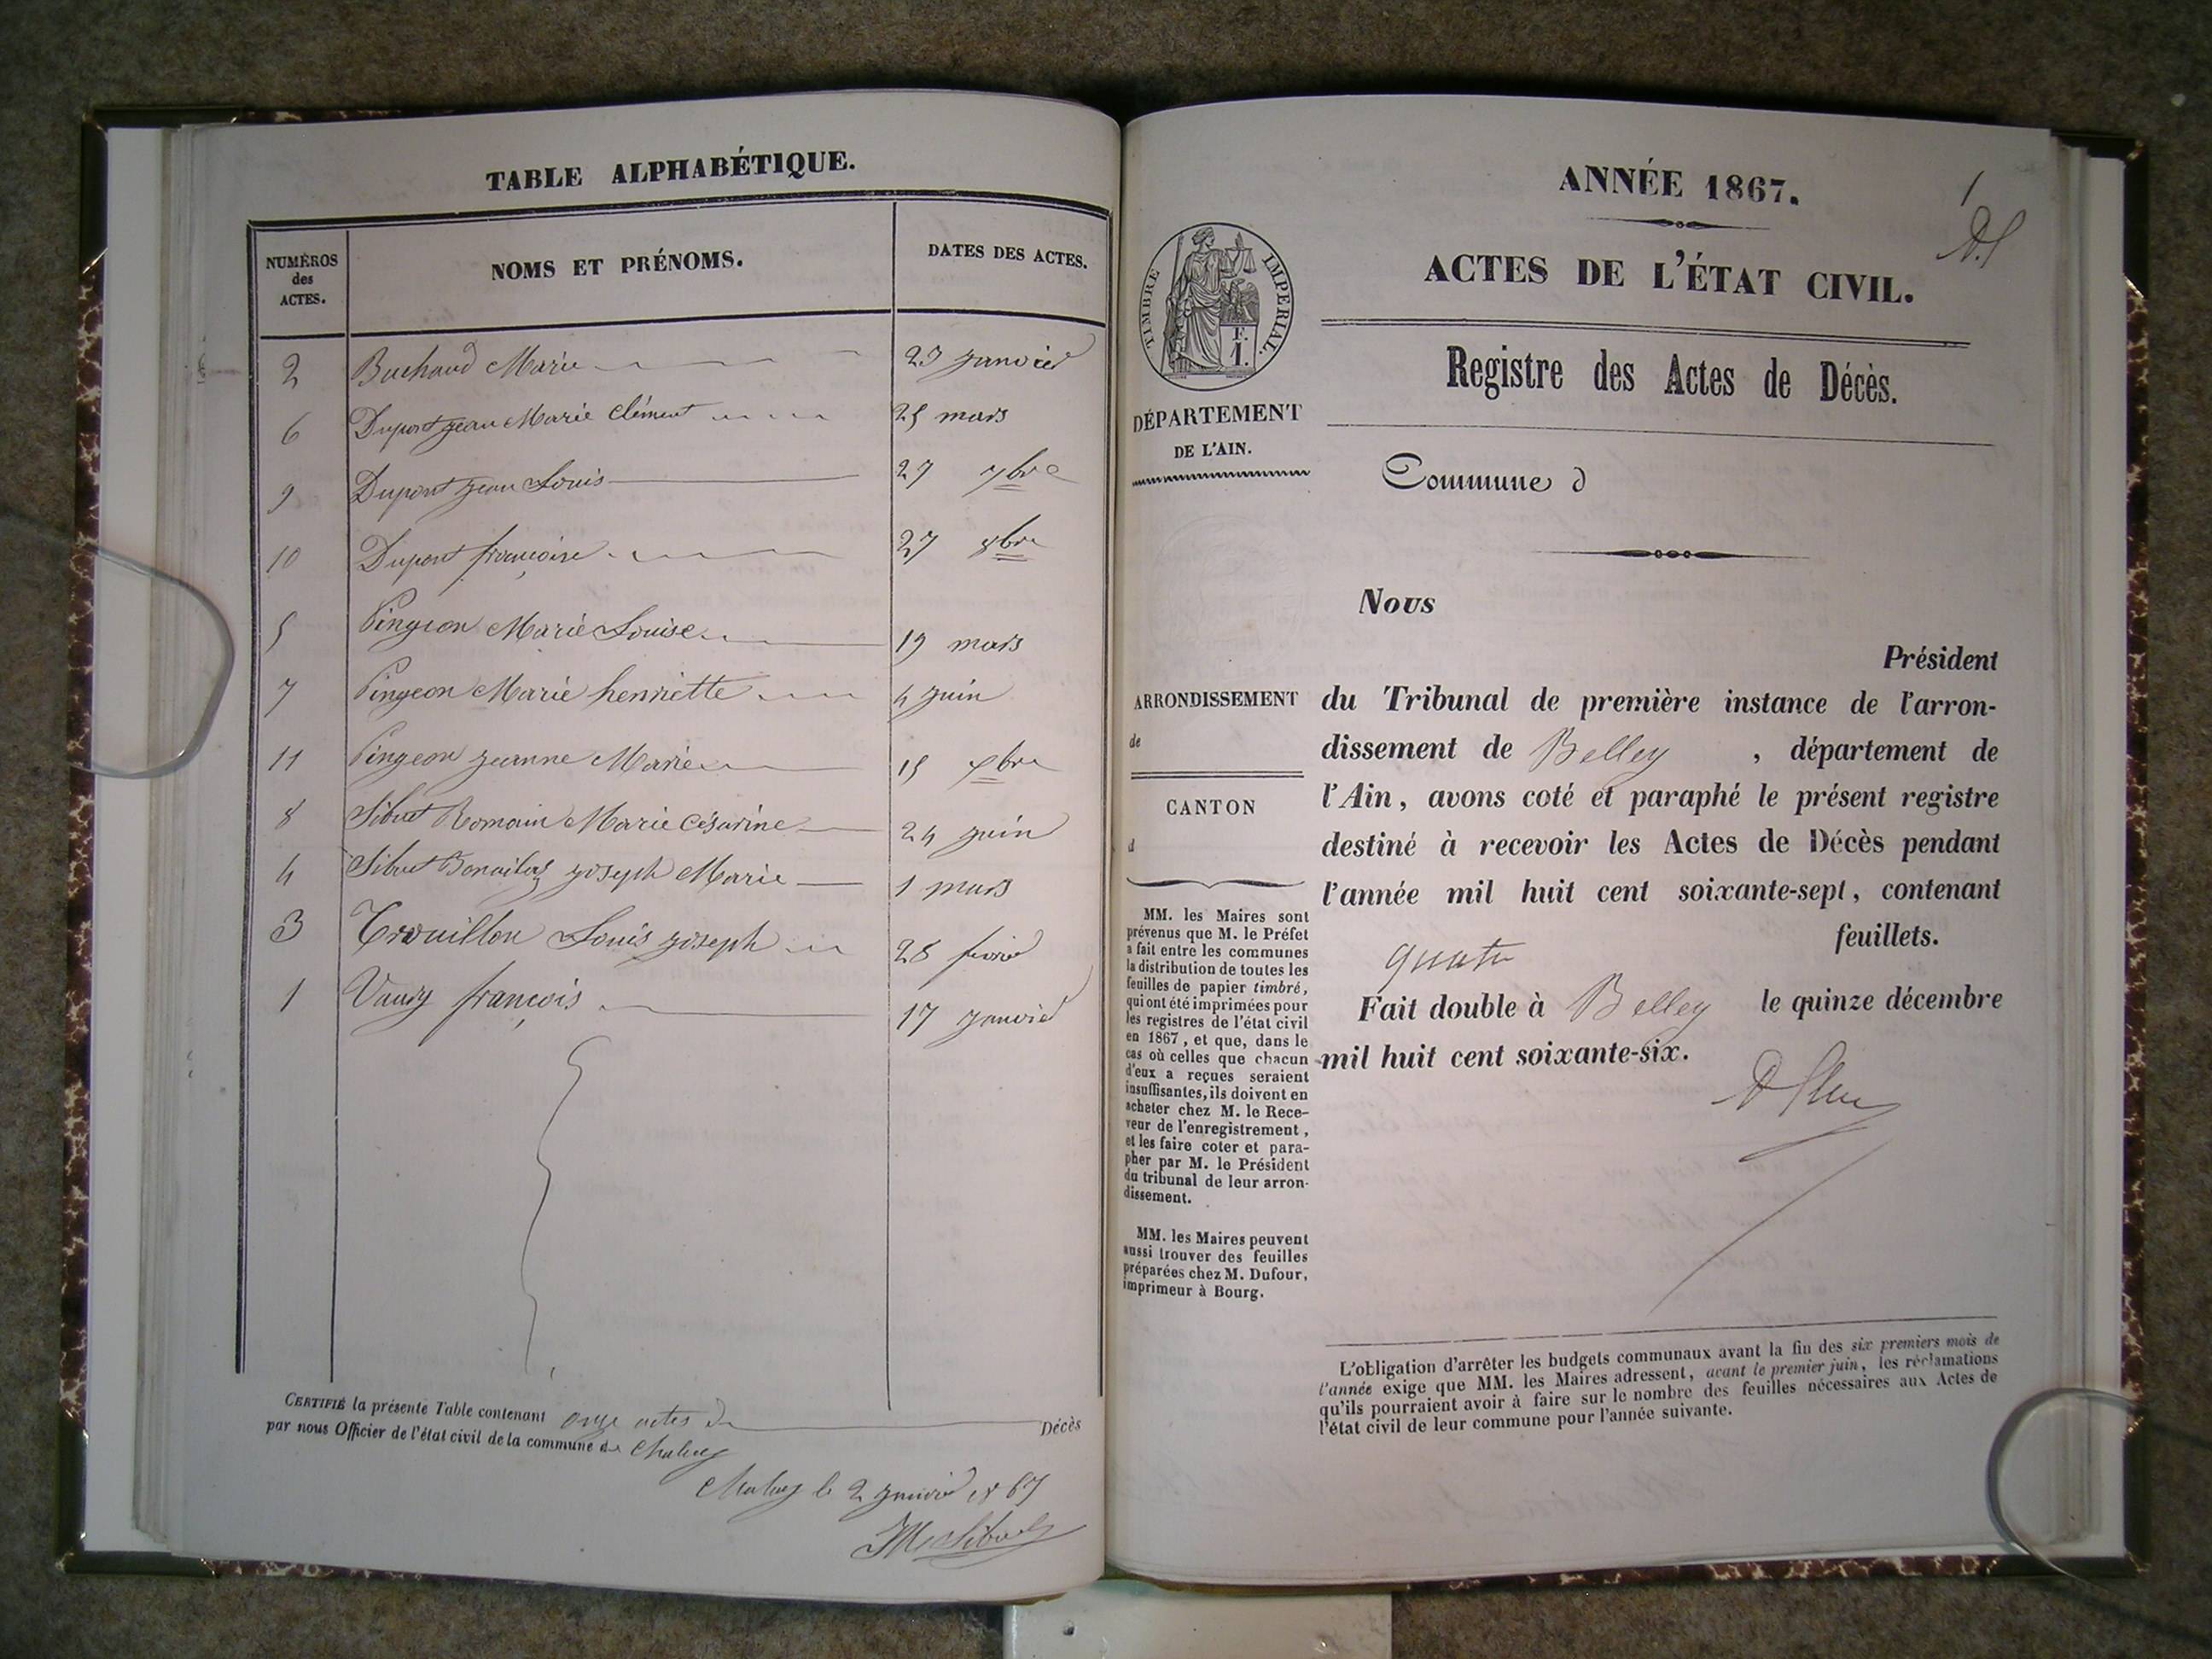 TABLE ALPHABÉTIQUE.
NUMÉROS
des
ACTES.
NOMS ET PRÉNOMS.
DATES DES ACTES.
2 Buchand Marie 23 janvier
6 Dupont jean Marie Clément 25 mars
9 Dupont jean Louis 27 7bre
10 Dupont françoise 27 8bre
5 Pingeon Marie Louise 19 mars
7 Pingeon Marie henriette 4 juin
11 Pingeon jeanne Marie 15 xbre
8 Sibut Romain Marie Césarine 24 juin
4 Sibut joseph Marie 1 mars
3 Trouillon Louis joseph 28 février
1 Vaudy françois 17 janvier
CERTIFIÉ la présente Table contenant onze actes de Décès
par nous Officier de l'état civil de la commune de Chaley
Chaley le 2 janvier 1867
ANNÉE 1867.
1
ACTES DE L'ÉTAT CIVIL.
TIMBRE IMPERIAL.
F.
1.
Registre des Actes de Décès.
DÉPARTEMENT
DE L'AIN.
Commune d
Nous
Président
ARRONDISSEMENT
de
CANTON
d
du Tribunal de première instance de l'arron-
dissement de Belley , département de
l'Ain, avons coté et paraphé le présent registre
destiné à recevoir les Actes de Décès pendant
l'année mil huit cent soixante-sept, contenant
quatre feuillets.
Fait double à Belley le quinze décembre
mil huit cent soixante-six.
MM. les Maires sont
prévenus que M. le Préfet
a fait entre les communes
la distribution de toutes les
feuilles de papier timbré,
qui ont été imprimées pour
les registres de l'état civil
en 1867, et que, dans le
cas où celles que chacun
d'eux a reçues seraient
insuffisantes, ils doivent en
acheter chez M. le Rece-
veur de l'enregistrement,
et les faire coter et para-
pher par M. le Président
du tribunal de leur arron-
dissement.
MM. les Maires peuvent
aussi trouver des feuilles
préparées chez M. Dufour,
imprimeur à Bourg.
L'obligation d'arrêter les budgets communaux avant la fin des six premiers mois de
l'année exige que MM. les Maires adressent, avant le premier juin, les réclamations
qu'ils pourraient avoir à faire sur le nombre des feuilles nécessaires aux Actes de
l'état civil de leur commune pour l'année suivante.